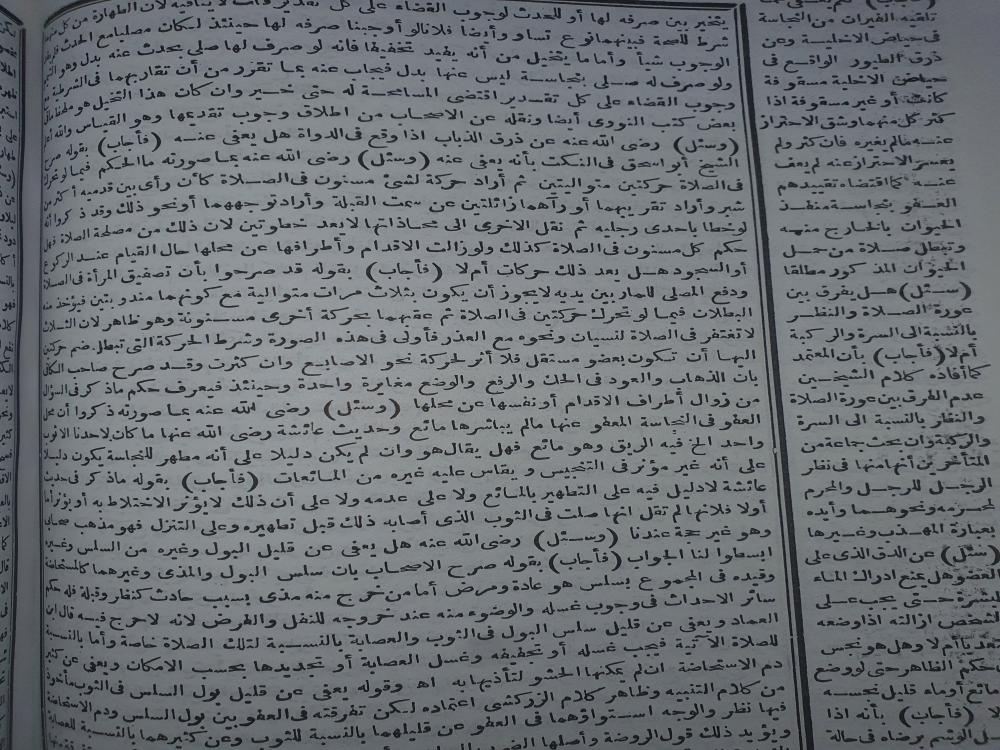 يتخير بين صرفه لها أو للحدث لوجوب القضاء على كل
شرط للصحة فبينهما نوع تساو وأيضا فلانا لو أوجبنا صرفه لها حينئذ لكان مصليا مع الحدث
الوجوب شيأ وأما ما يتخيل من أنه يفيد تخفيفا فانه لو صرف لها صلى بحدث عنه بدل وهو
ولو صرف له صلى بنجاسة ليس عنها بدل فيجاب عنه بما تقرر من أن تقاربهما فى الشرطية
وجوب القضاء على كل تقدير اقتضى المسامحة له حتى خير وان كان هذا التخيل هو ملحظ ما فى
بعض كتب النووى أيضا ونقله عن الاصحاب من اطلاق وجوب تقديمها وهو القياس والله
(وسئل) رضى الله عنه عن ذرق الذباب اذا وقع فى الدواة هل يعفى عنه (فأجاب) بقوله صرح
الشيخ أبو اسحق فى النكت بأنه يعفى عنه (وسئل) رضى الله عنه بما صورته ما الحكم فيما لو تحرك
فى الصلاة حركتين متواليتين ثم أراد حركة لشئ مسنون فى الصلاة كأن رأى بين قدميه أكثر من
شبر وأراد تقريبهما أو رآهما زائلتين عن سمت القبلة وأراد توجههما أو نحو ذلك وقد ذكروا أنه
لو خطا باحدى رجليه ثم نقل الاخرى الى محاذاتها لا يعد خطوتين لان ذلك من مصلحة الصلاة فهل
حكم كل مسنون فى الصلاة كذلك ولو زالت الاقدام وأطرافها عن محلها حال القيام عند الركوع
أو السجود هل يعد ذلك حركات أم لا (فأجاب) بقوله قد صرحوا بأن تصفيق المرأة فى الصلاة
ودفع المصلى للمار بين يديه لا يجوز أن يكون بثلاث مرات متوالية مع كونهما مندوبتين فيؤخذ منه
البطلان فيما لو تحرك حركتين فى الصلاة ثم عقبهما بحركة أخرى مسنونة وهو ظاهر لان الثلاث
لا تغتفر فى الصلاة لنسيان ونحوه مع العذر فأولى فى هذه الصورة وشرط الحركة التى تبطل ضم حركتين
اليها أن تكون بعضو مستقل فلا أثر لحركة نحو الاصابع وان كثرت وقد صرح صاحب الكافى
بان الذهاب والعود فى الحك والرفع والوضع مغايرة واحدة وحينئذ فيعرف حكم ما ذكر فى السؤال
من زوال أطراف الاقدام أو نفسها عن محلها (وسئل) رضى الله عنه بما صورته ذكروا أن محل
العفو فى النجاسة المعفو عنها مالم يباشرها مائع وحديث عائشة رضى الله عنها ما كان لاحدنا الا ثوب
واحد الخ فيه الريق وهو مائع فهل يقال هو وان لم يكن دليلا على أنه مطهر للنجاسة يكون دليلا
على أنه غير مؤثر فى التنجيس ويقاس عليه غيره من المائعات (فأجاب) بقوله ما ذكر فى حديث
عائشة لا دليل فيه على التطهير بالمائع ولا على عدمه ولا على أن ذلك لا يؤثر الاختلاط به أو يؤثر أما
أولا فلانها لم تقل انها صلت فى الثوب الذى أصابه ذلك قبل تطهيره وعلى التنزل فهو مذهب صحابى
وهو غير حجة عندنا (وسئل) رضى الله عنه هل يعفى عن قليل البول وغيره من السلس وغيره
ابسطوا لنا الجواب (فأجاب) بقوله صرح الاصحاب بان سلس البول والمذى وغيرهما كالمستحاضة
وقيده فى المجموع بسلس هو عادة ومرض أما من خرج منه مذى بسبب حادث كنظر وقبلة فله حكم
سائر الاحداث فى وجوب غسله والوضوء منه عند خروجه للنفل والفرض لانه لا حرج فيه قال ابن
العماد ويعفى عن قليل سلس البول فى الثوب والعصابة بالنسبة لتلك الصلاة خاصة وأما بالنسبة
للصلاة الآتية فيجب غسله أو تخفيفه وغسل العصابة أو تجديدها بحسب الامكان ويعفى عن كثير
دم الاستحاضة ان لم يمكنها الحشو لتأذيها به اه وقوله يعفى عن قليل بول السلس فى الثوب مأخوذ
من كلام التنبيه وظاهر كلام الزركشى اعتماده لكن تفرقته فى العفو بين بول السلس ودم الاستحاضة
فيها نظر والوجه استواؤهما فى العفو عن قليلهما بالنسبة للثوب وعن كثيرهما بالنسبة للعصابة
ويؤيد ذلك قول الروضة وأصلها
تلقيه الفيران من النجاسة
فى حياض الاخلية وعن
ذرق الطيور الواقع فى
حياض الاخلية مسقوفة
كانت أو غير مسقوفة اذا
كثر كل منهما وشق الاحتراز
عنه مالم يغيره فان كثر ولم
يعسر الاحتراز عنه لم يعف
عنه كما اقتضاه تقييدهم
العفو بنجاسة منفذ
الحيوان بالخارج منه
وتبطل صلاة من حمل
الحيوان المذكور مطلقا
(سئل) هل يفرق بين
عورة الصلاة والنظر
بالنسبة الى السرة والركبة
أم لا (فأجاب) بأن المعتمد
كما أفاده كلام الشيخين
عدم الفرق بين عورة الصلاة
والنظر بالنسبة الى السرة
والركبة وان بحث جماعة من
المتأخرين أنها منها فى نظر
الرجل للرجل والمحرم
لمحرمه ونحوهما وأيده
بعبارة المهذب وغيرها
(سئل) عن الدق الذى على
العضو هل يمنع ادراك الماء
للبشرة حتى يجب على
الشخص ازالته اذا وضعه
تعديا أم لا وهل هو نجس
حكم الظاهر حتى لو وضع
مائع أو ماء قليل نجسه
لا (فأجاب) بأنه اذا
الوشم برضاه فى حالة